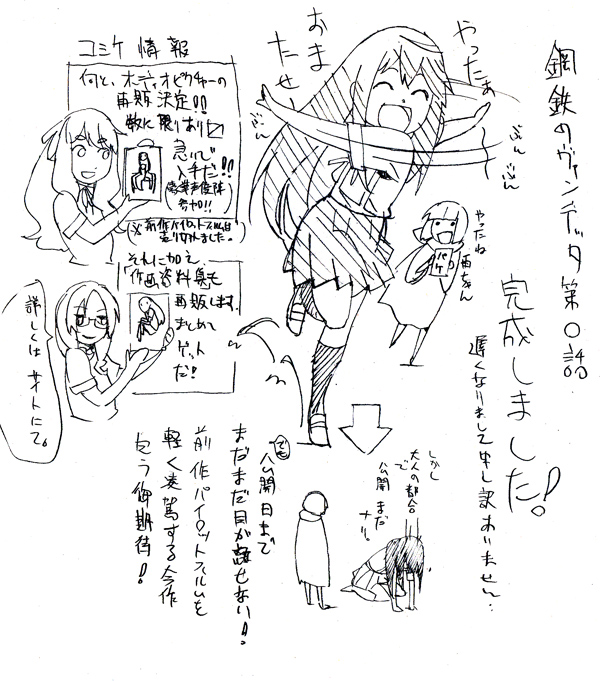 鋼鉄のヴァンデッタ第0話
完成しました!
遅くなりまして申し訳ありません…
やったぁ
おまたせ!
ぶんぶん
ぶん
ぶん
やったね
西ちゃん
パケ
コミケ情報
何と、オーディオピクチャーの
再販決定!!
数に限りあり
急いで
入手だ!!
(豪華声優陣
参加!!)
(※前作パイロットフィルムは
売り切れました。)
それに加え、
「作画資料集も
再販します。
まとめて
ゲット
だ!
詳しくはサイトにて。
しかし
大人の都合
で
公開まだ
ナリ。
でも
公開日まで
まだまだ目が離せない!
前作パイロットフィルムを
軽く凌駕する今作
乞う御期待!